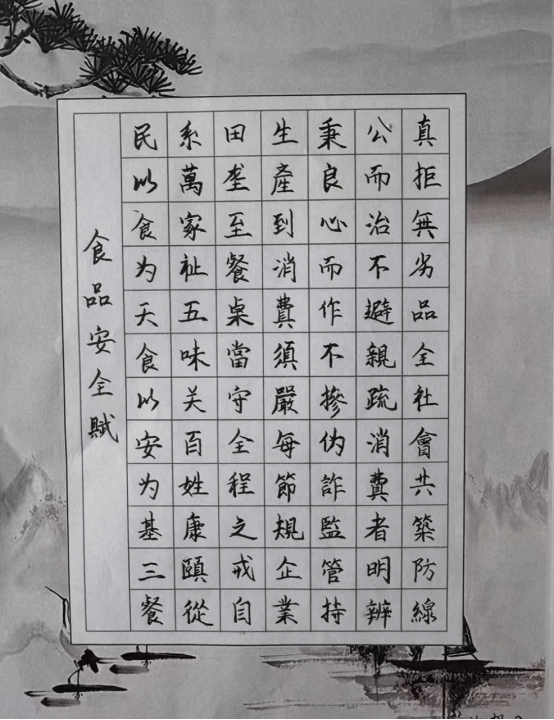 食品安全賦
民以食为天食以安为基三餐
系萬家祉五味关百姓康頤從
田垄至餐桌當守全程之戒自
生產到消費須嚴每節規企業
秉良心而作不摻伪詐監管持
公而治不避親疏消費者明辨
真拒無劣品全社會共築防線